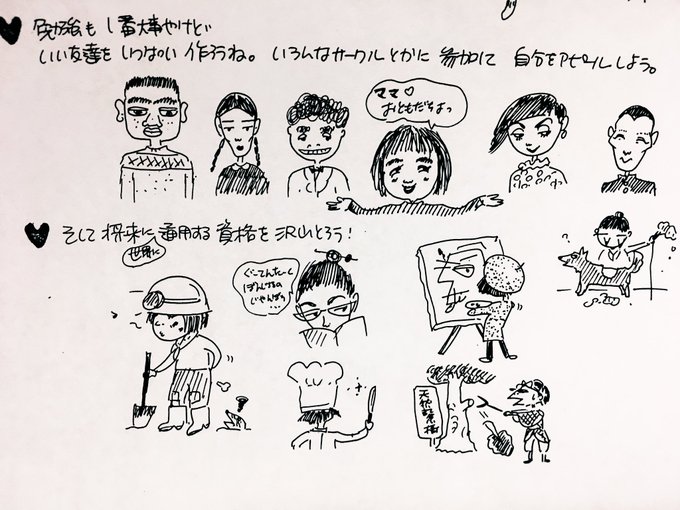 勉強も1番大事やけど
いい友達をしっかい作ろうね。いろんなサークルとかに参加して自分をアピールしよう。
ママ♡
おともだちよっ
そして将来に通用する資格を沢山とろう!
世界に
ぐーてんたーく
ぼんじゅーる
じゃんぼぅ
天然記念樹